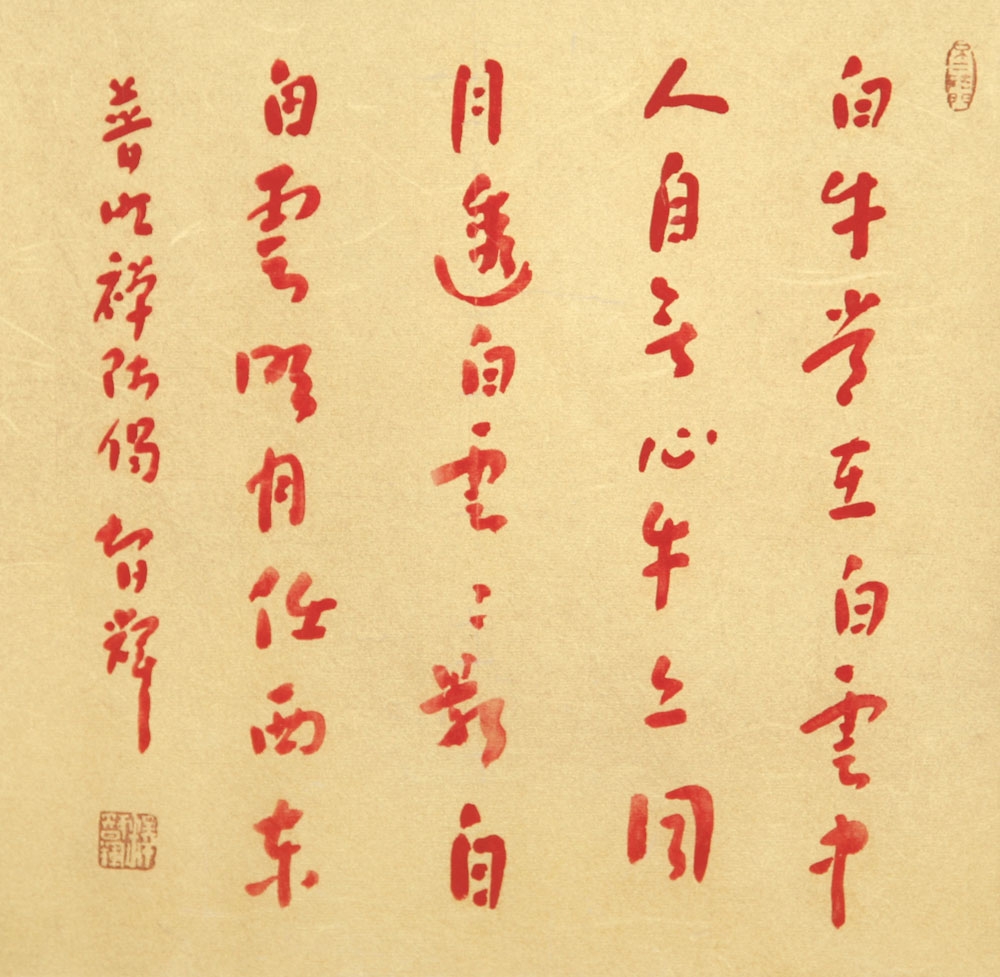 白牛常在白雲中
人自無心牛亦同
月透白雲〻影白
白雲明月任西東
普明禪師偈 智輝